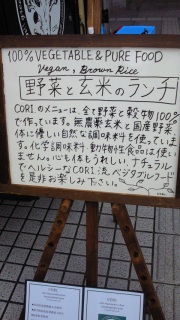 100% VEGETABLE & PURE FOOD
Vegan, Brown Rice
野菜と玄米のランチ
CORIのメニューは、全て野菜と穀物100%
で作っています。無農薬玄米と国産野菜
体に優しい自然な調味料を使っていま
す。化学調味料、動物性食品は使い
ません。心も体もうれしい、ナチュラル
でヘルシーなCORI流、ベジタブルフード
を是非お楽しみ下さい。